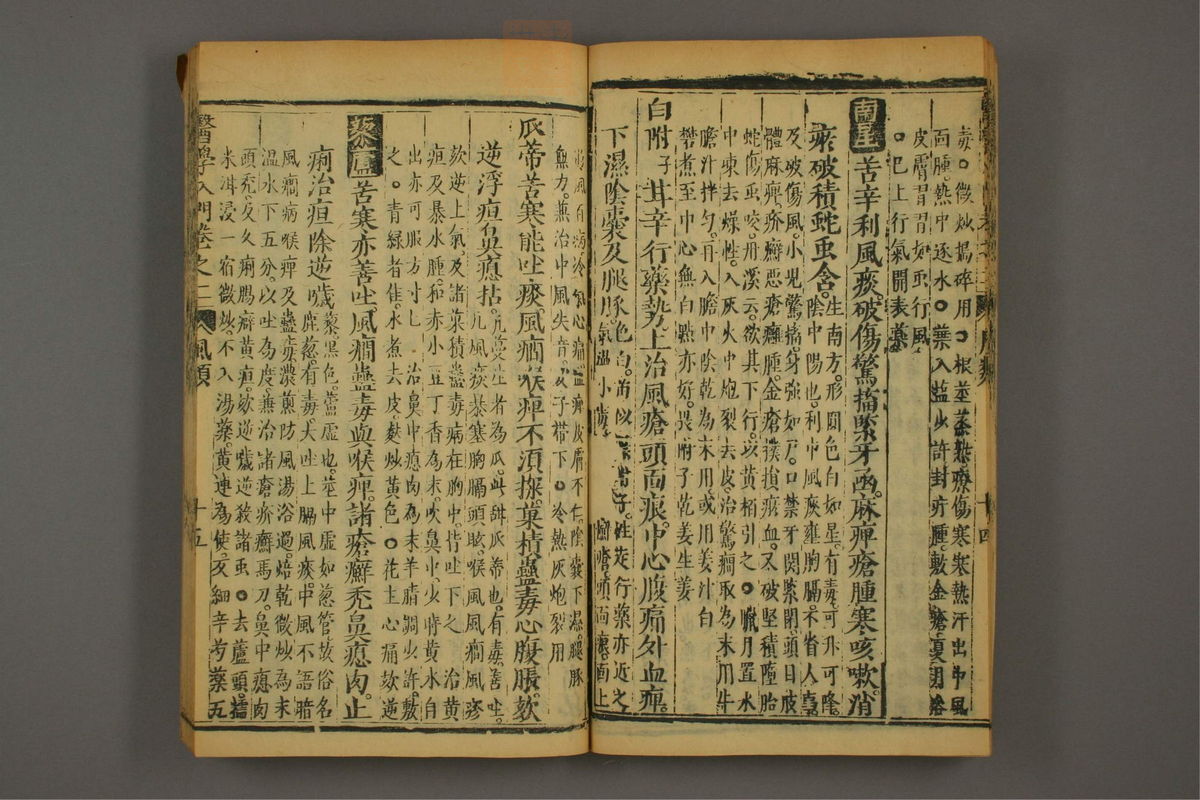 毒○微炒搗碎用○根莖蒸熬療傷寒寒熱汗出中風
面腫熱中逐水○葉入鹽少許封疔腫敷金瘡夏月浴
皮膚習習如虫行風
○已上行氣開表藥
南星苦辛利風痰破傷驚搐緊牙函麻痺瘡腫寒咳嗽消
瘀破積蛇虫含生南方形圓色白如星有毒可升可降
陰中陽也利中風痰壅胸膈不省人事
及破傷風小兒驚搐身強如尸口禁牙関緊閉頭目
體麻痺疥癬惡瘡癰腫金瘡撲損瘀血又破堅積墮胎
蛇傷虫咬丹溪云欲其下行以黃栢引之○臘月置水
中凍去燥性入灰火中炮裂去皮治驚癎取為末用牛
膽汁拌勻再入膽中陰乾為末用或用姜汁白
礬煮至中心無白點亦好畏附子乾姜生姜
白附子甘辛行藥勢上治風瘡頭面痕中心腹痛外血痺
下濕陰囊及腿豚色白苗似附子性走行藥亦近之
氣溫小毒 瘡頭面痕面上
風百病冷氣心痛血痺皮膚不仁陰囊下濕腿豚
無力兼治中風失音及子帶下○冷熱灰炮裂用
瓜蒂苦寒能吐痰風癎喉痺不須探菓積蠱毒心腹脹欬
逆浮疸鼻瘜拈瓜蔓生者為瓜此甜瓜蒂也有毒善吐
凡風痰暴塞胸膈頭眩喉風癎風疹
欬逆上氣及諸菓積蠱毒病在胸中皆吐下之 治黃
疸及暴水腫和赤小豆丁香為末吹鼻中少時黃水自
出亦可服方寸匕 治鼻中瘜肉為末羊脂調少許敷
之○青綠者佳水煮去皮麩炒黃色○花主心痛欬逆
藜蘆苦寒亦善吐風癎蠱毒與喉痺諸瘡癬禿鼻瘜肉止
痢治疸除逆噦藜黑色蘆虛也莖中虛如葱管故俗名
鹿葱有毒大吐上膈風痰中風不語暗
風癎病喉痺及蠱毒濃煎防風湯浴過焙乾微炒為末
溫水下五分以吐為度兼治諸瘡疥癬馬刀鼻中瘜肉
頭禿久久痢腸癖黃疸欬逆噦逆殺諸虫○去蘆頭糯
米泔浸一宿微炒不入湯藥黃連為使反細辛芍藥五
醫學入門卷之二 風類
十五
十四